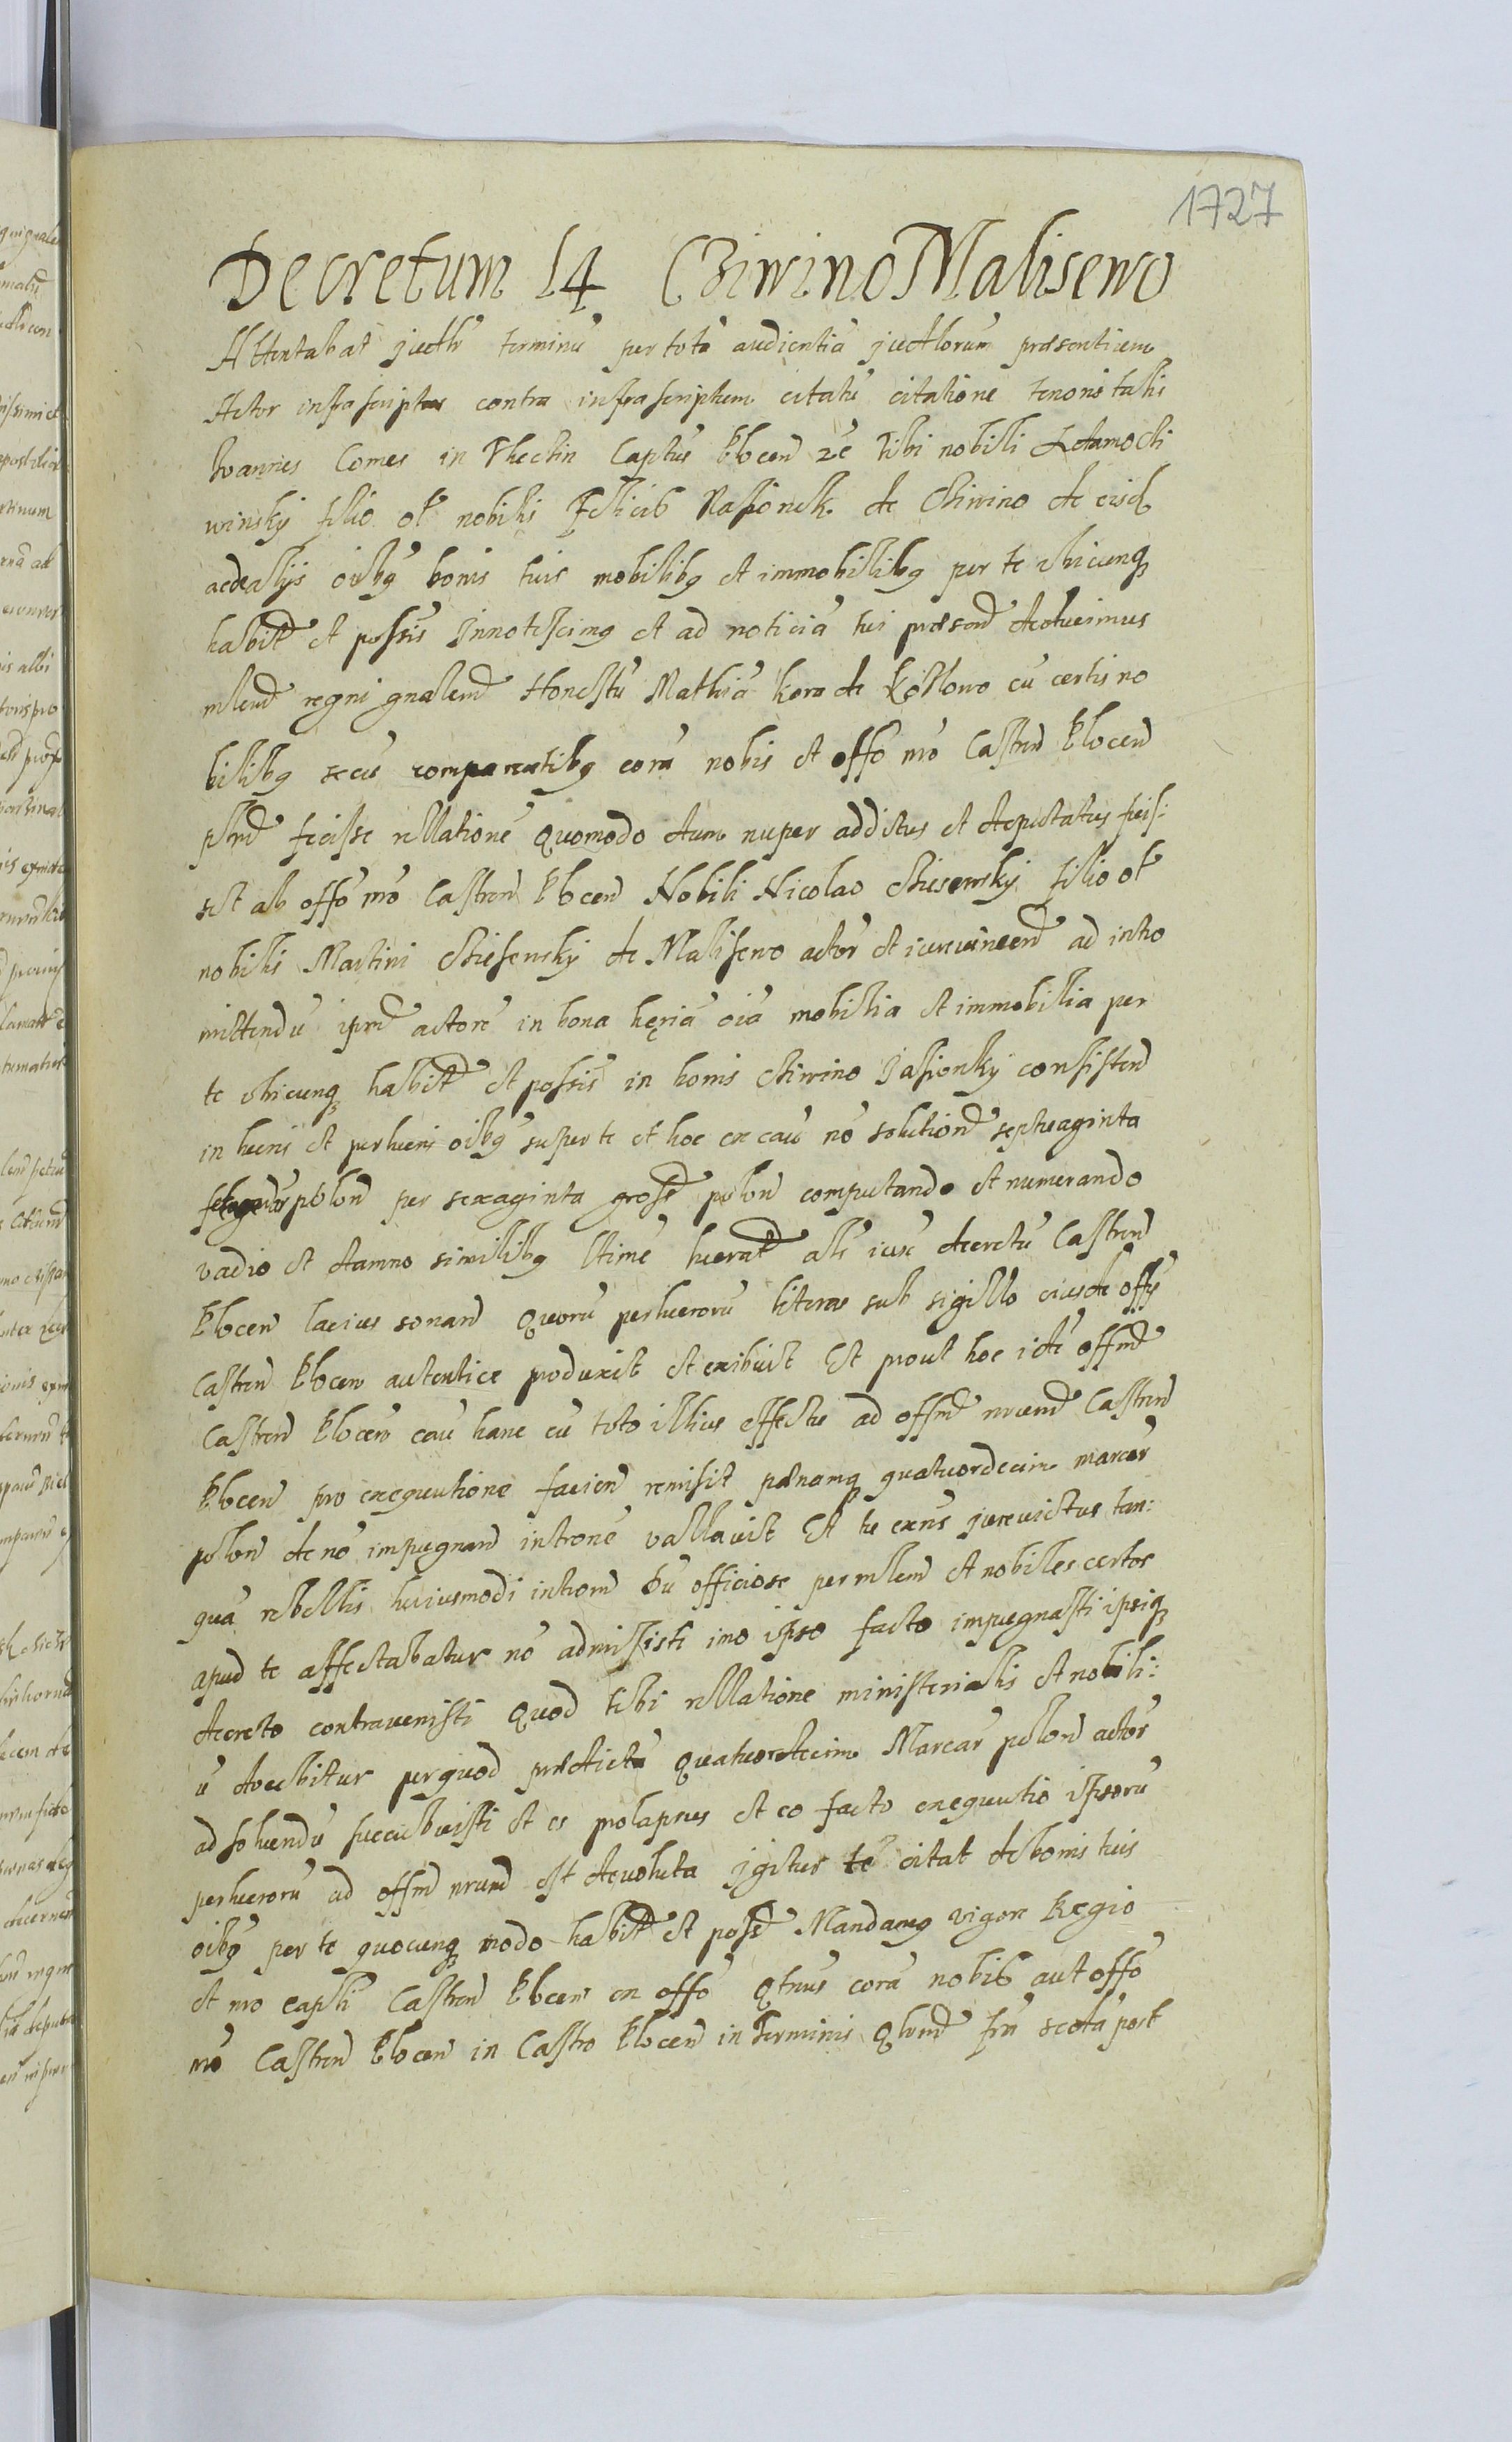 1727
Decretum 14 Cziwino Malisewo
Attentabat judtr terminũ per totã audientiã judtlorum præsentium
Actor infrascriptus contra infrascriptum citatũ citatione tenoris talis
Ioannes Comes in Thectin Captũs Plocen zẽ Tibi nobili Adamo Czi
winsky filio ol nobilis Felicis Rasionek de Cziwino de eisd
acdealijs oibq bonis tuis mobilibq et immobilibq per te vbicunq
habit et possis Innotescimq et ad noticiã tui præsend deducimus
mlend regni gnalem Honestũ Mathiã kora de Kozłowo cũ certis no
bilibq secũ comparentibq corã nobis et offo nrõ Castren Plocen
pnd fecisse rellationẽ Quomodo dum nuper additus et deputatus fuis:
set ab offo nrõ Castren Plocen Nobili Nicolao Chisewsky filio ol
nobilis Martini Chisewsky de Malisewo actor et iurevincend ad intro
mittendũ ipm actorẽ in bona hęriã oiã mobilia et immobilia per
te vbicunq habit et possis in bonis Cziwino Jasionsky consisten
in lucris et perlucris oibq super te et hoc ex cau nõ solutiond septuaginta
sexagenar polon per sexaginta gross polon computando et numerando
vadio et damno similibq ltimẽ lucrat als iux decretũ Castren
Plocen lacius sonan Quorũ perlucrorũ literas sub sigillo eiusdẽ offy
Castren Plocen autentice produxit et exibuit Et prout hoc idẽ offm
Castren Plocen cau hanc cũ toto illius effectu ad offm nrum Castren
Plocen pro exequutione facien remisit pænamq quatuordecim marcar
polon de nõ impugnan intronẽ vallavit Et tu exns jurevictus tan:
quã rebellis huiusmodi introm dũ officiose per mlem et nobiles certos
apud te affectabatur nõ admisisti imo ipso facto impugnasti ipsiq
decreto contravenisti Quod tibi rellatione ministerialis et nobili:
ũ docebitur perquod prædictã quatuordecim Marcar polon actor
ad solvendũ succubuisti et es prolapsus et eo facto exequutio ipsorũ
perlucrorũ ad offm nrum est devoluta igitur te citat de bonis tuis
oibq per te quocunq modo habit et poss Mandamq vigore Regio
et nro capli Castren Plocen ex offo Qtnus corã nobis aut offo
nrõ Castren Plocen in Castro Plocen in terminis Qlund fra scdã post